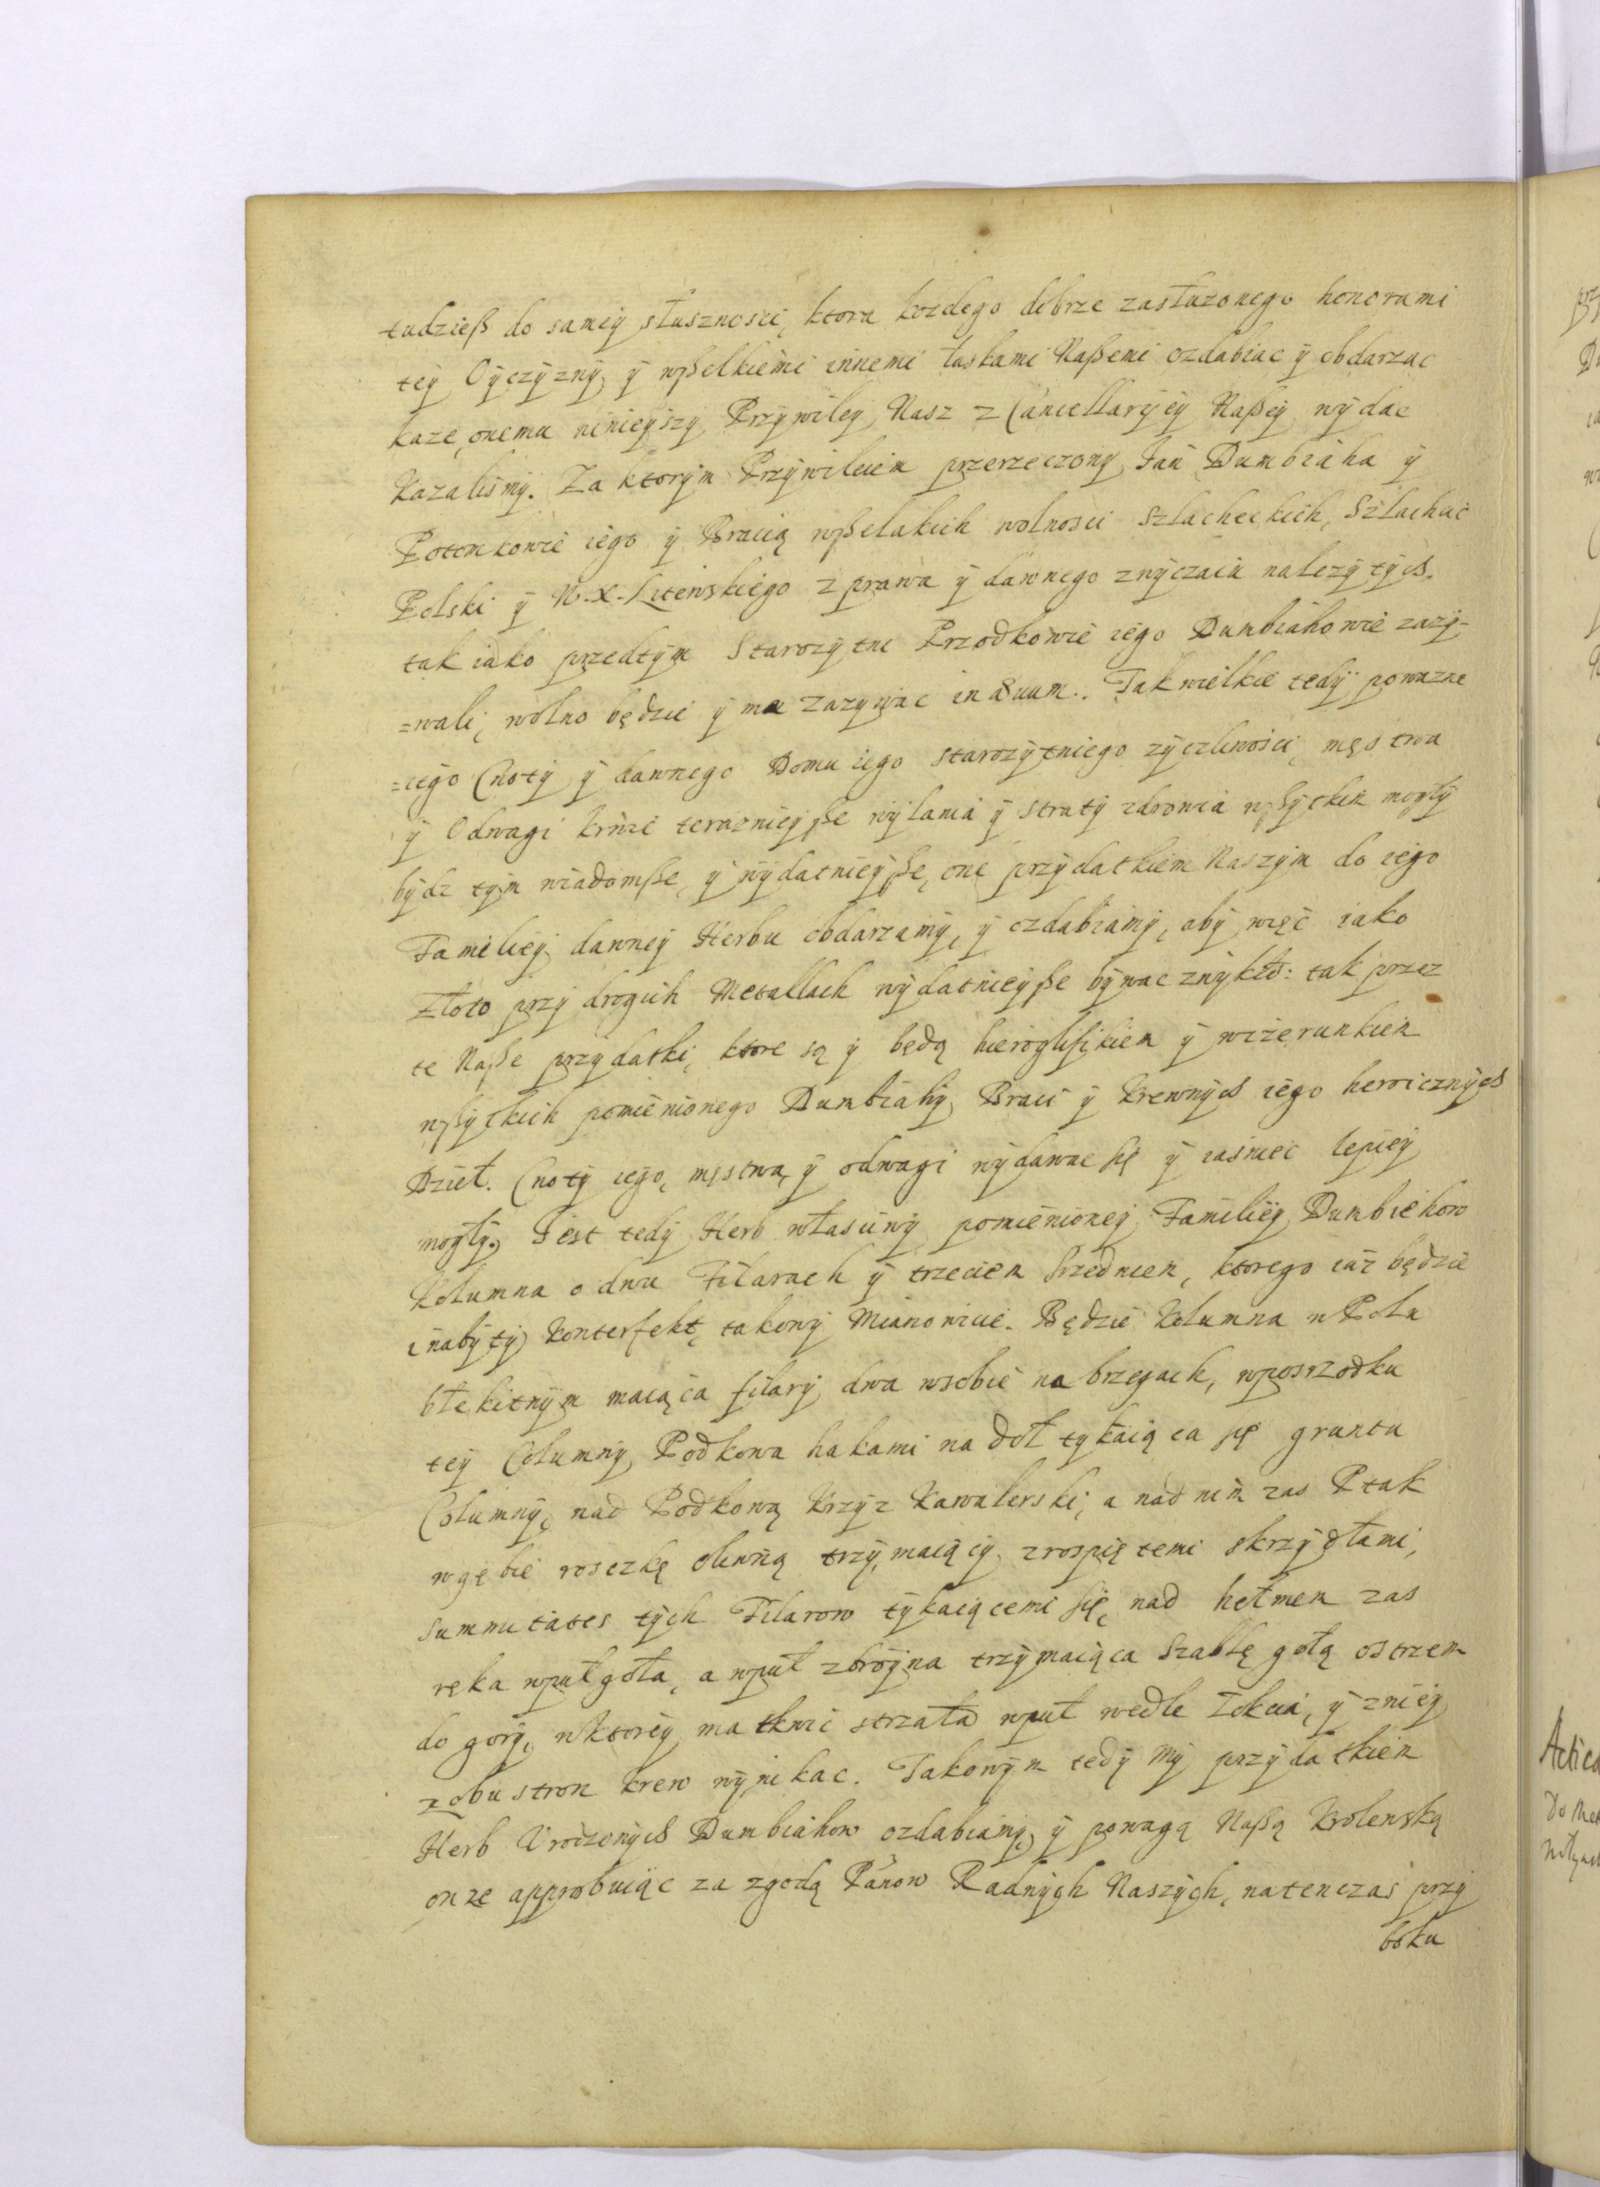 tudzieß do samey słusznosci, ktora kozdego dobrze zasłuzonego honorami
tey Oyczyzny, y wßelkiemi innemi łaskami Naßemi ozdabiac y obdarzac
kaze, onemu ninieyszy Przywiley Nasz z Cancellaryey Naßey wydac
Kazalismy. Za ktorym Przywileiem przerzeczony Jan Dumbiaha y
Potomkowie iego y Bracią wßelakich wolnosci Szlacheckich, Szlachcie
Polski y W. X. Litewskiego z prawa y dawnego zwyczaiu nalezytych.
tak iako przedtym Starozytni Przodkowie iego Dumbiahowie zazy=
=wali, wolno będzie y ma zazywac in ævum. Tak wielkie tedy powazne
=iego Cnoty y dawnego Domu iego starozytniego zyczliwosci, męstwa
y Odwagi krwie teraznieyße wylania y straty zdrowia wßytkim mogły
bydz tym wiadomße, y wydatnieyße, one przydatkiem Naszym do iego
Familiey dawney Herbu obdarzamy, y ozdabiamy, aby więc iako
Złoto przy drogich Metallach wydatnieyße bywac zwykło: tak przez
te Naße przydatki, ktore są y będą hieroglifikiem y wizerunkiem
wßytkich pomienionego Dumbiahy Braci y Krewnych iego heroicznych
Dzieł. Cnoty iego, męstwa, y odwagi wydawac się y iasniec lepiey
mogły. Jest tedy Herb własciwy pomienioney Familiey Dumbiehow
Kolumna o dwu Filarach y trzeciem srzednien, ktorego iuz będzie
inabyty Konterfekt, takowy Mianowicie. Będzie Kolumna w Polu
błekitnym maiąca filary dwa wsobie na brzegach, wposrzodku
tey Columny Podkowa hakami na doł tykaiąca się gruntu
Columny, nad Podkową Krzyz Kawalerski, a nad nim zas Ptak
wgębie rosczkę oliwną trzymaiący, zrospiętemi skrzydłami,
summitates tych Filarow tykaiącemi się, nad hełmem zas
ręka wpuł goła, a wpuł zbroyna trzymaiąca Szablę gołą ostrzem
do gory, wktorey ma tkwic strzała wpuł wedle Łokcia, y zniey
zobu stron krew wynikac. Takowym tedy My przydatkiem
Herb Urodzonych Dumbiahow ozdabiamy, y powagą Naßą Krolewską
onze approbuiąc za zgodą Panow Radnych Naszych, natenczas przy
boku